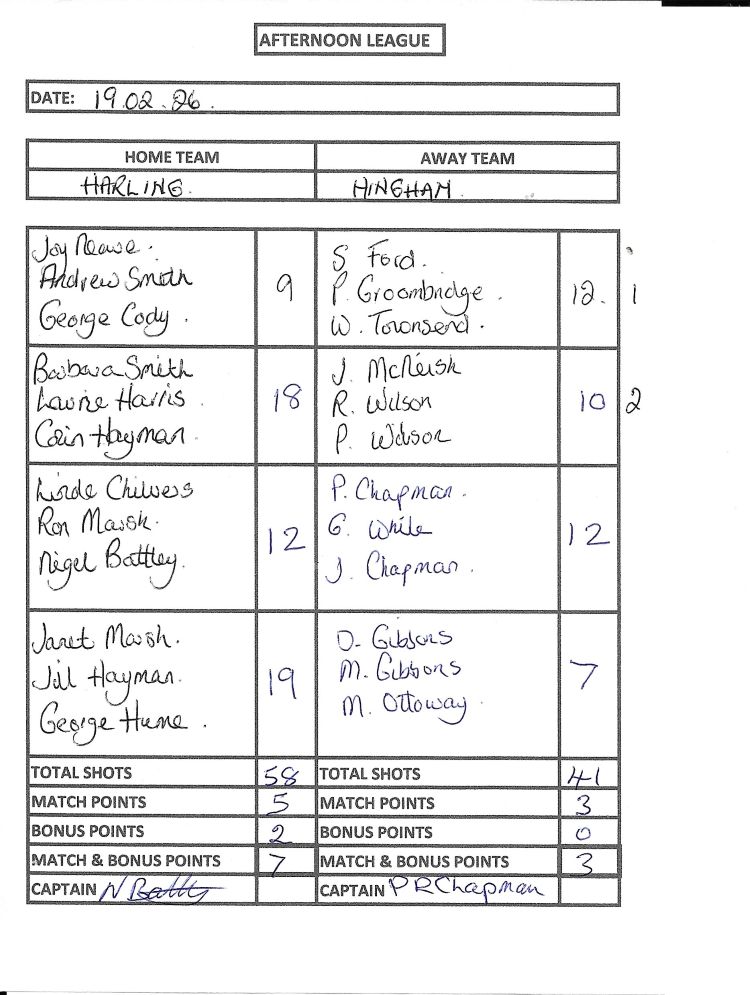 AFTERNOON LEAGUE
DATE: 19.02.26.
HOME TEAM AWAY TEAM
HARLING. HINGHAM.
Joy
Andrew Smith
George Cody.
9
S Ford.
P. Groombridge.
W. Townsend.
12. 1
Barbara Smith
Laurie Harris.
Colin Hayman.
18
J. McNeish
R. Wilson
P. Wilson
10 2
Linda Chilvers
Ron Marsh.
Nigel Battley.
12
P. Chapman.
G. While
J. Chapman.
12
Janet Marsh.
Jill Hayman.
George Hume.
19
D. Gibbons
M. Gibbons
M. Ottoway.
7
TOTAL SHOTS 58 TOTAL SHOTS 41
MATCH POINTS 5 MATCH POINTS 3
BONUS POINTS 2 BONUS POINTS 0
MATCH & BONUS POINTS 7 MATCH & BONUS POINTS 3
CAPTAIN N Battley CAPTAIN P R Chapman